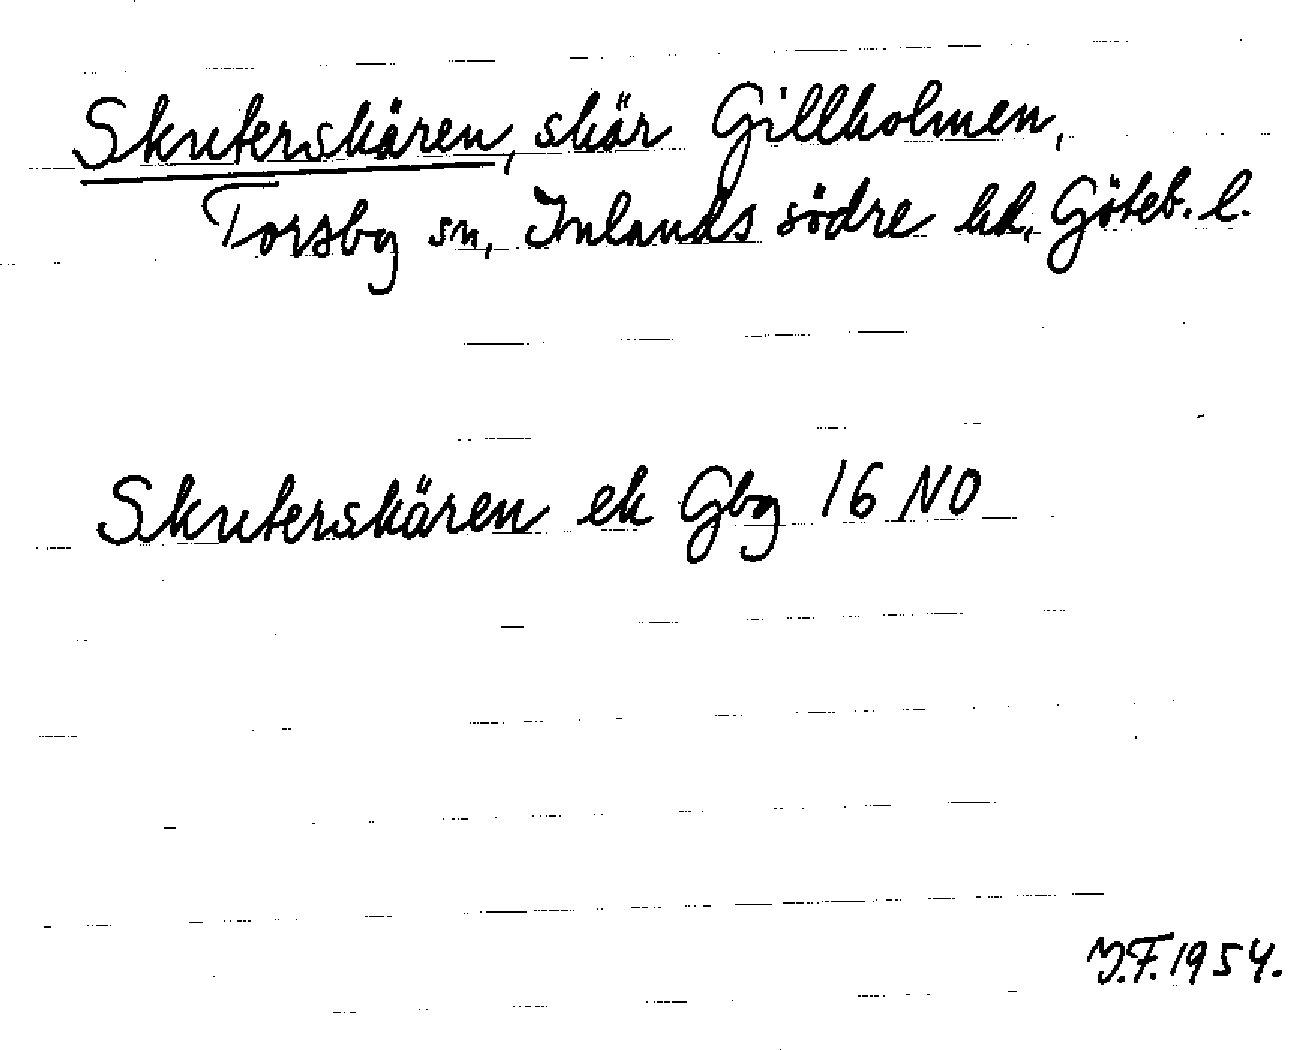 Skuterskären, skär Gillholmen,
Torsby sn, Inlands södre hd, Göteb. l.
Skuterskären ek Gbg 16 NO
J.F. 1954.